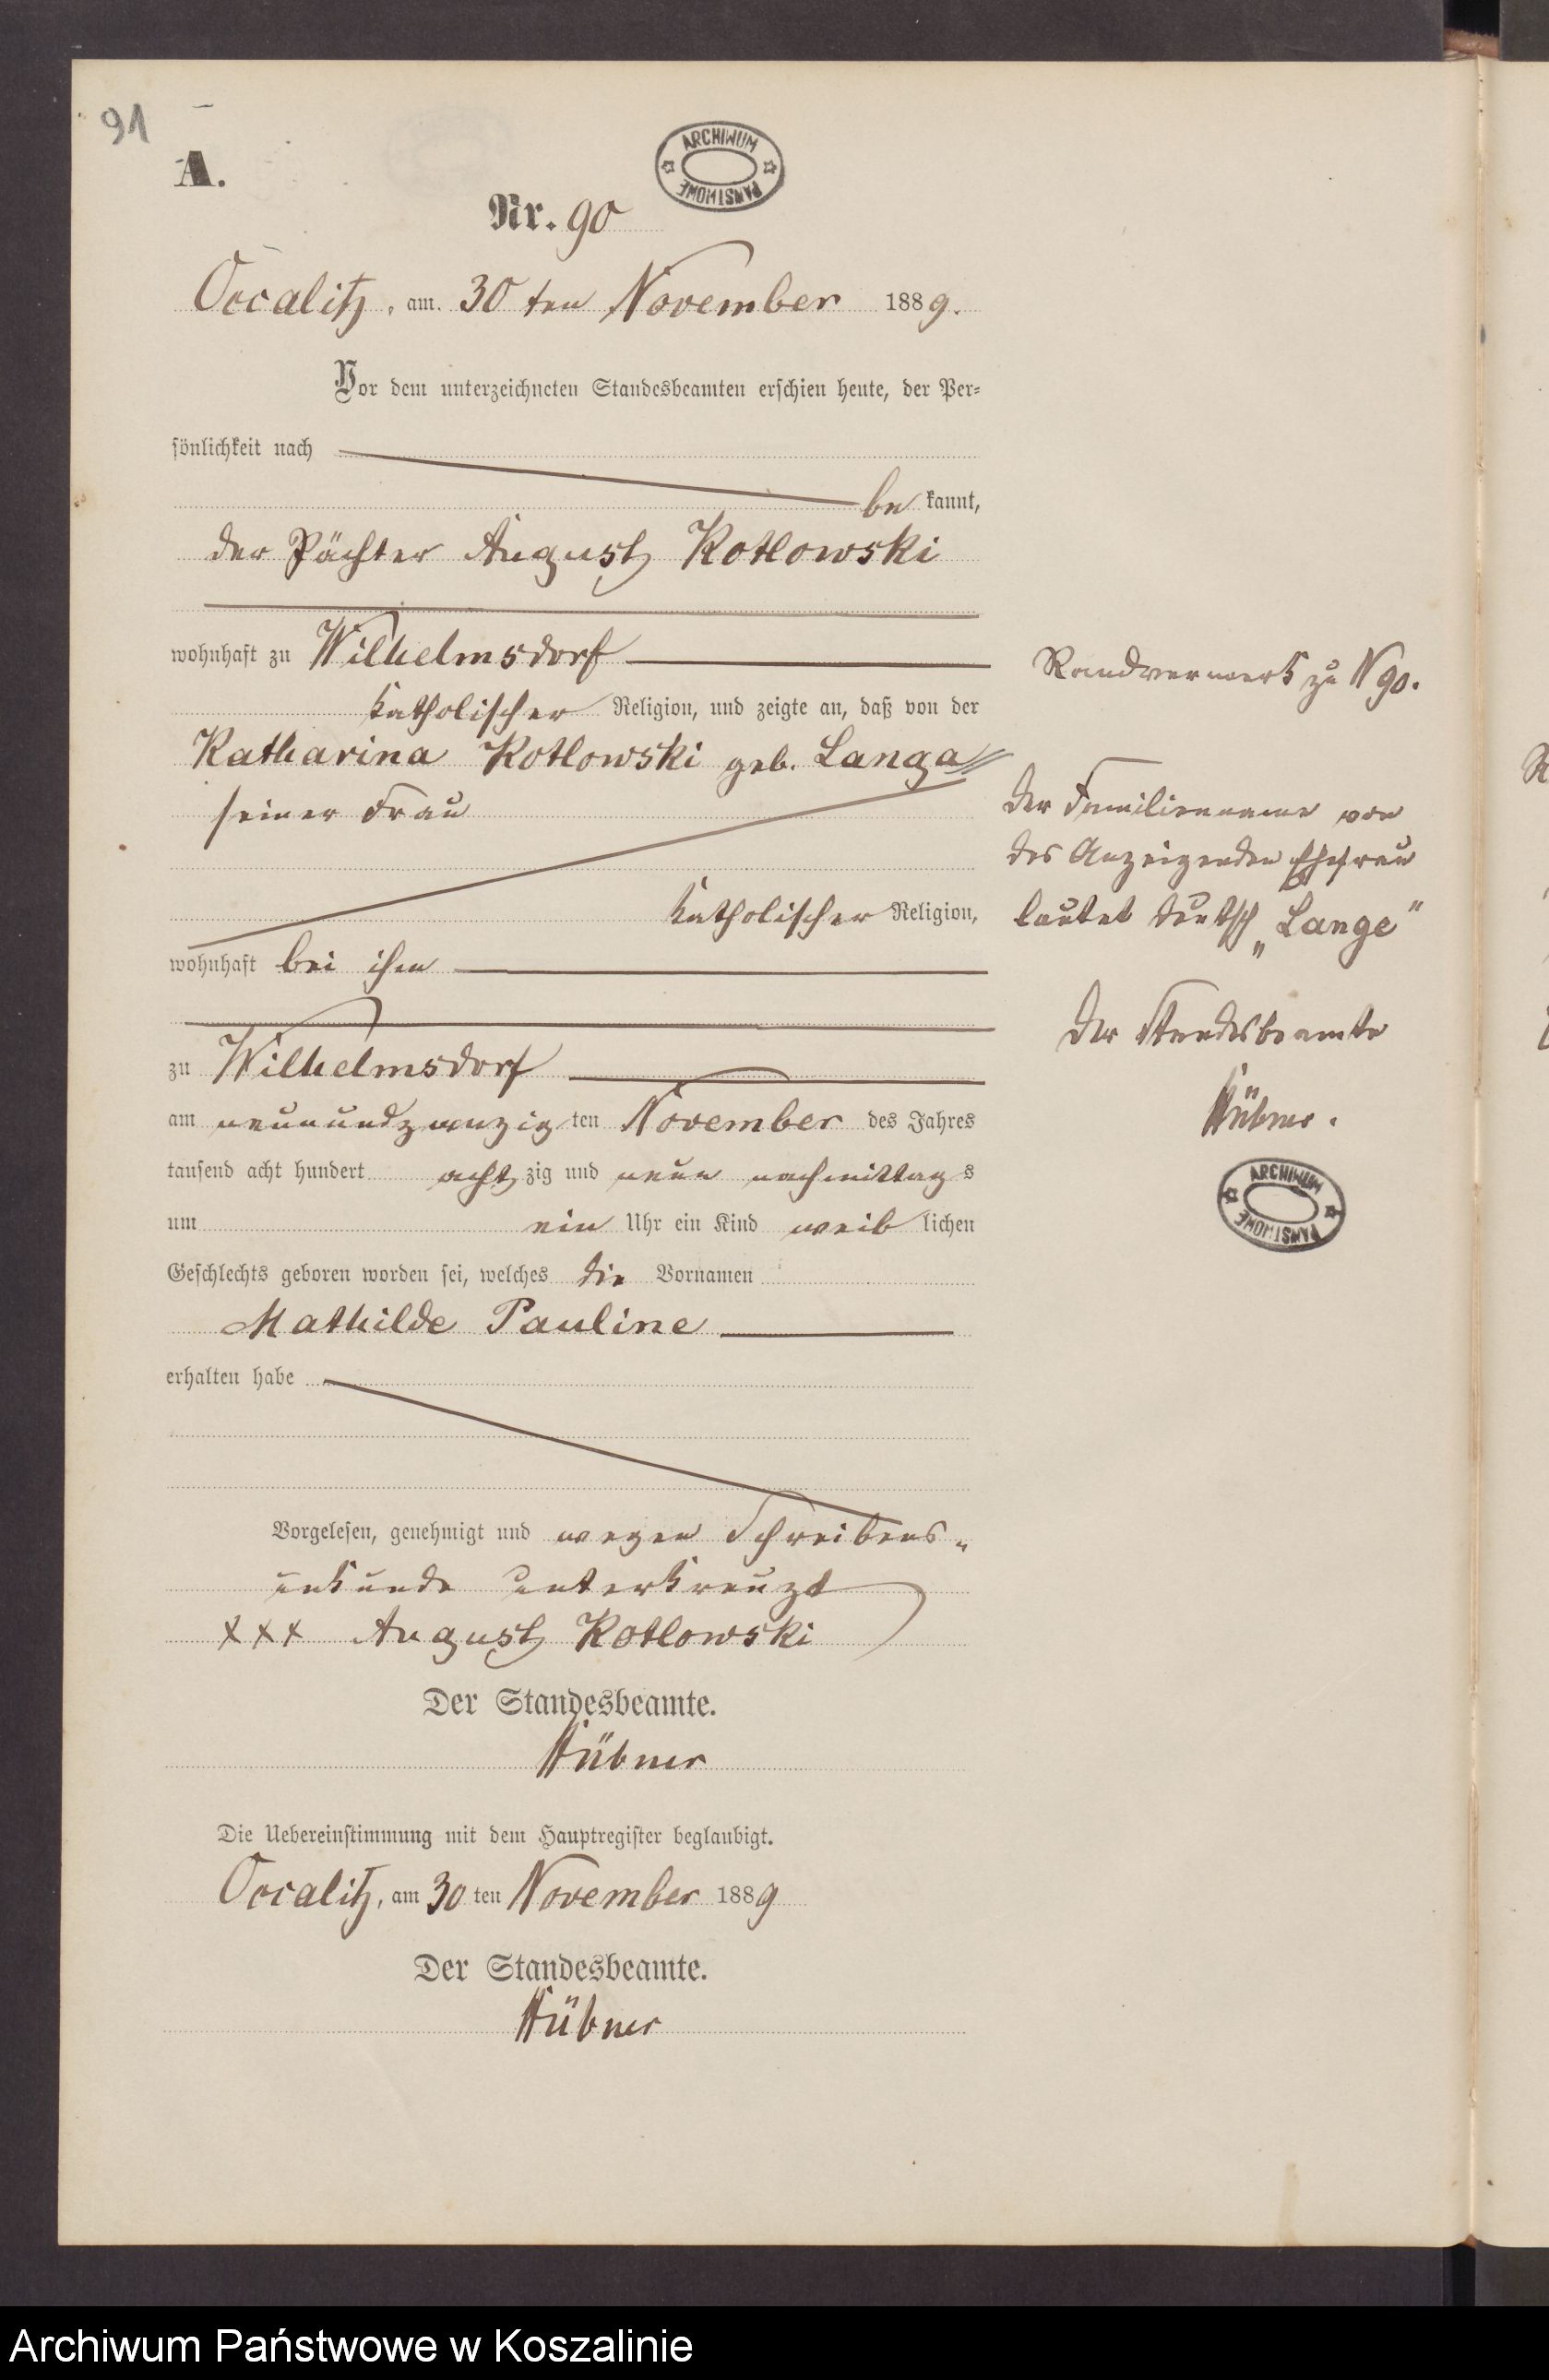 91
A.
ARCHIWUM PAŃSTWOWE
Nr. 90
Occalitz, am 30 ten November 1889.
Vor dem unterzeichneten Standesbeamten erschien heute, der Per-
sönlichkeit nach
be kannt,
der Pächter August Kotlowski
wohnhaft zu Wilhelmsdorf
katholischer Religion, und zeigte an, daß von der
Katharina Kotlowski geb. Langa
seiner Frau
katholischer Religion,
wohnhaft bei ihm
zu Wilhelmsdorf
am neunundzwanzig ten November des Jahres
tausend acht hundert acht zig und neun nachmittag s
um ein Uhr ein Kind weib lichen
Geschlechts geboren worden sei, welches die Vornamen
Mathilde Pauline
erhalten habe
Vorgelesen, genehmigt und wegen Schreibens-
unkunde unterkreuzt
xxx August Kotlowski
Der Standesbeamte.
Hübner
Die Uebereinstimmung mit dem Hauptregister beglaubigt.
Occalitz, am 30 ten November 1889
Der Standesbeamte.
Hübner
Randvermerk zu N 90.
Der Familienname von
des Anzeigenden Ehefrau
lautet deutsch „Lange"
Der Standesbeamte
Hübner.
ARCHIWUM PAŃSTWOWE
Archiwum Państwowe w Koszalinie